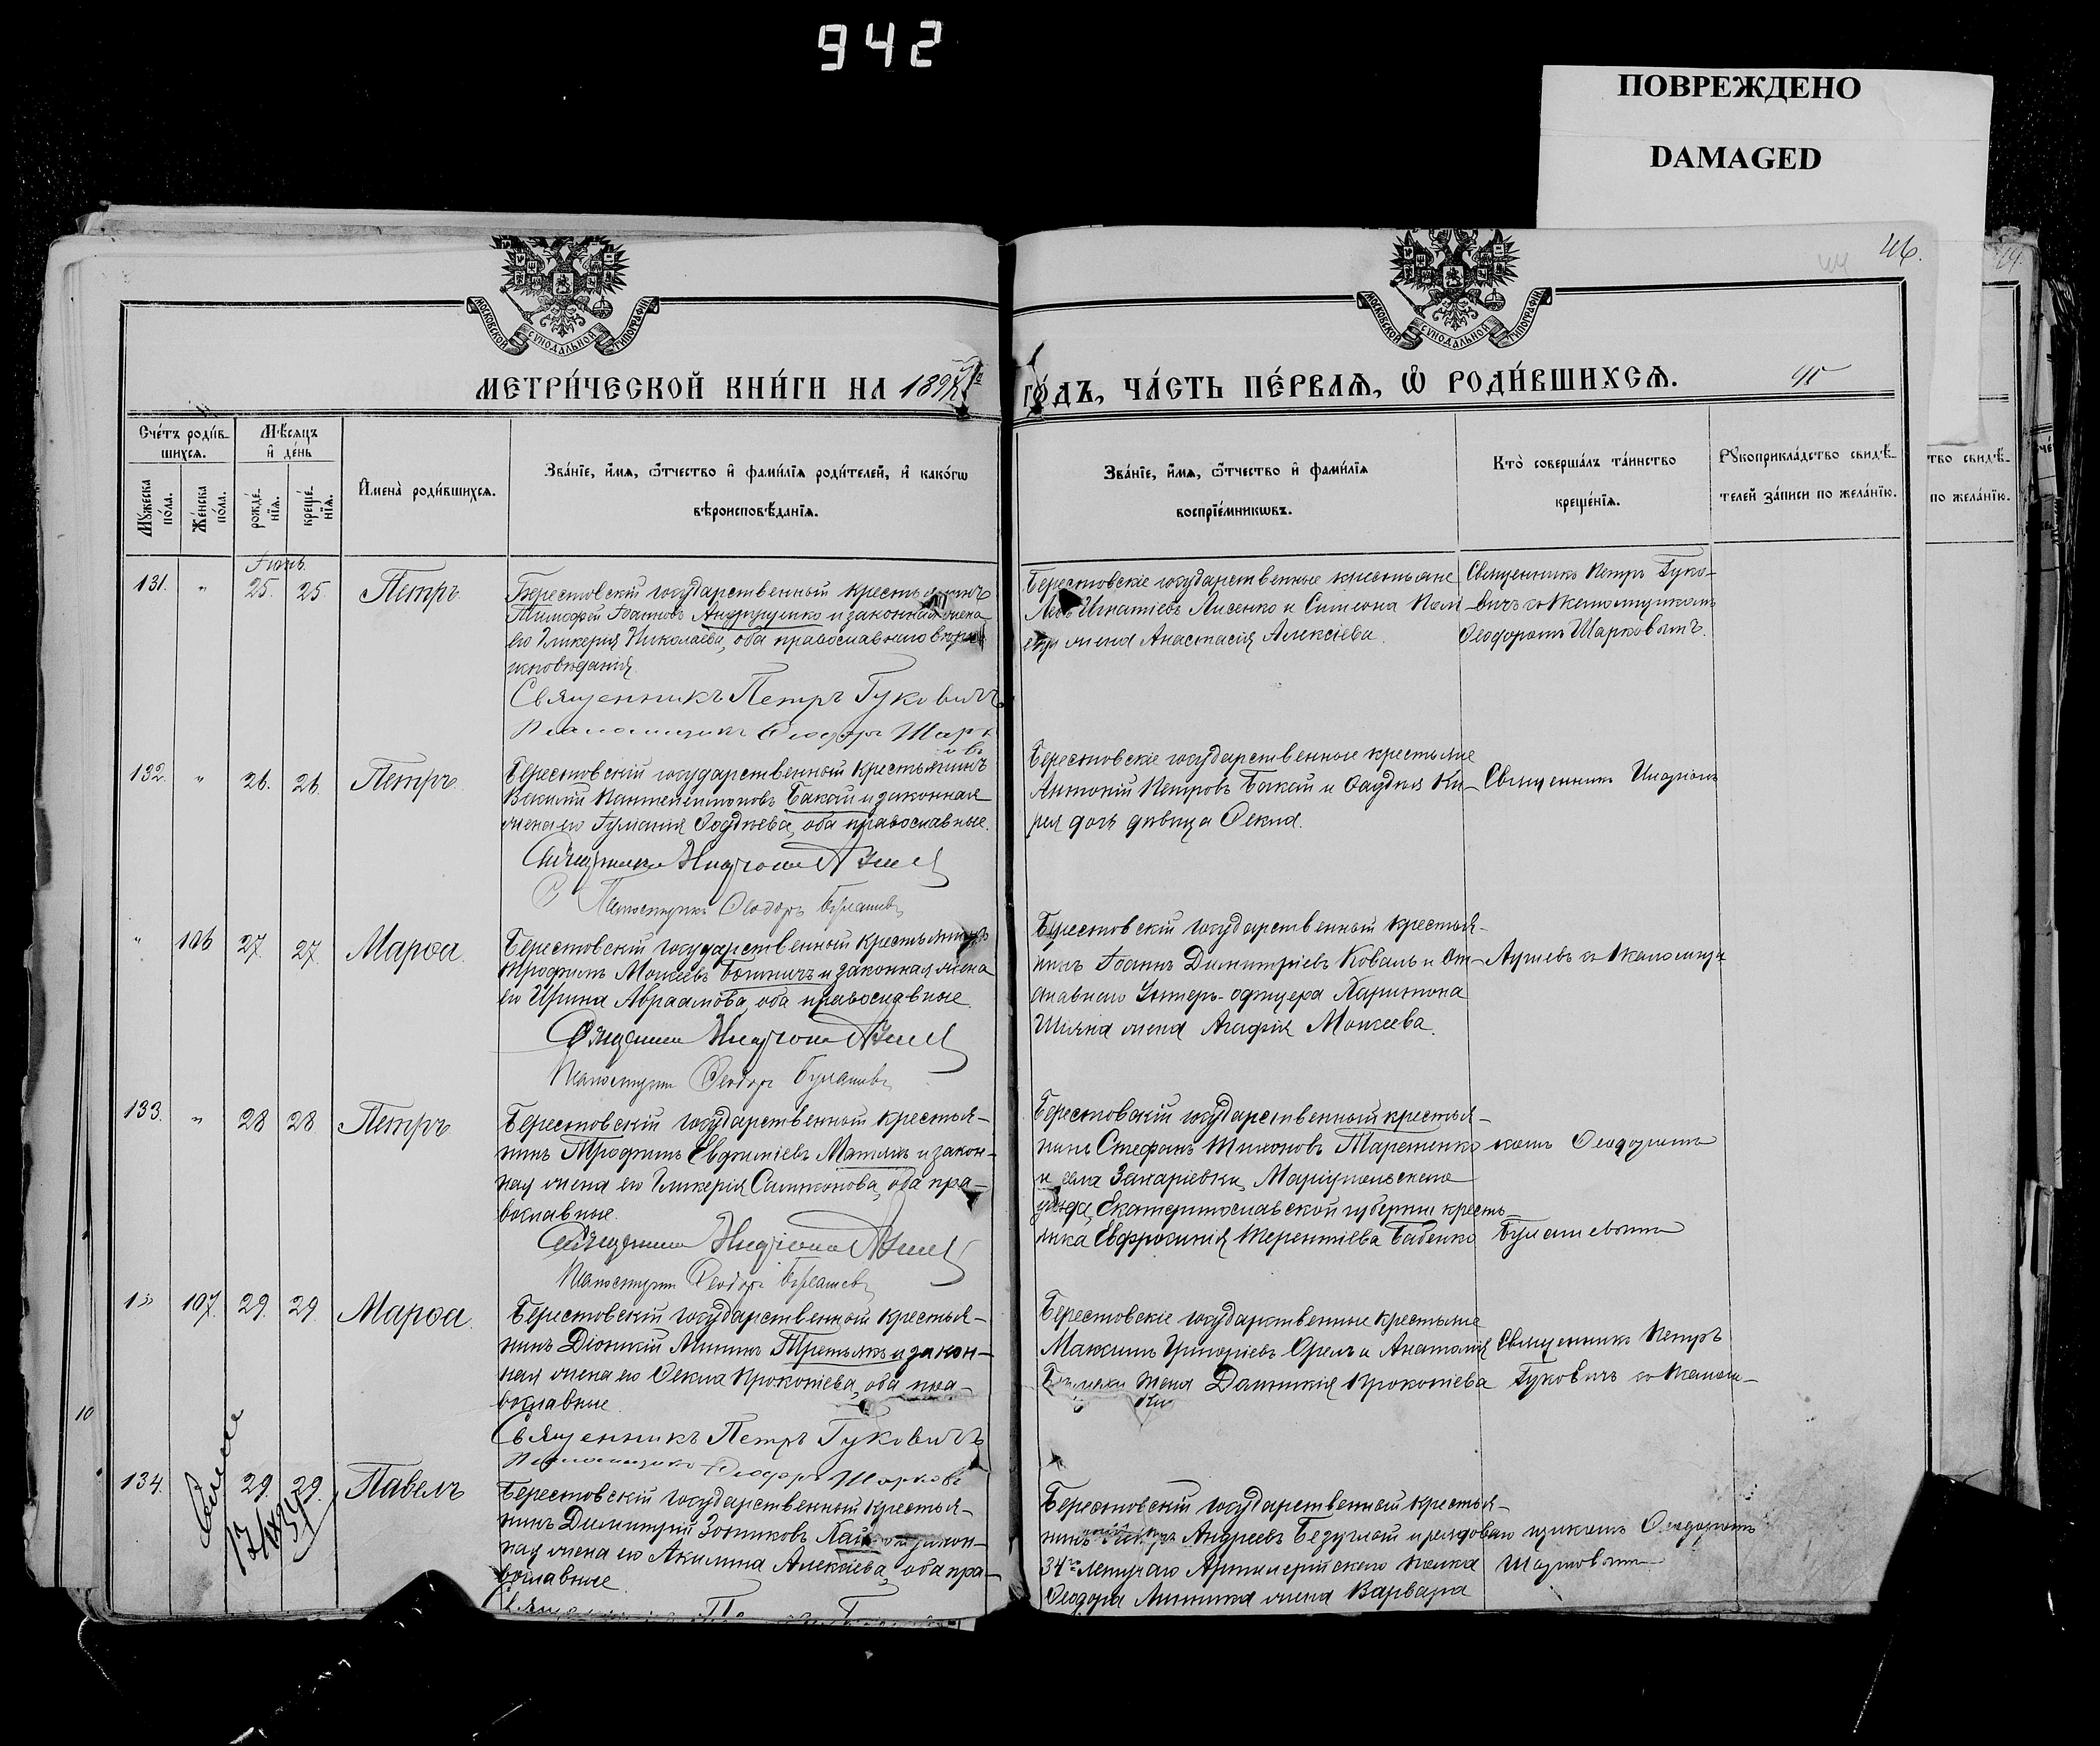 942
ПОВРЕЖДЕНО
DAMAGED
46.
МОСКОВСКОЙ СѴНОДАЛЬНОЙ ТИПОГРАФІИ
МОСКОВСКОЙ СѴНОДАЛЬНОЙ ТИПОГРАФІИ
МЕТРИ́ЧЕСКОЙ КНИ́ГИ НА
ГО́ДЪ, ЧА́СТЬ ПЕ́РВАѦ, Ѡ҆ РОДИ́ВШИХСѦ.
45
Сче́тъ роди́в-
шихсѧ.
Мѣ́сѧцъ
и҆ де́нь
Мꙋ́жеска
по́ла.
Же́нска
по́ла.
рожде́-
нїѧ.
креще́-
нїѧ.
И҆мена̀ роди́вшихсѧ.
Зва́нїе, и҆́мѧ, ѻ҆́тчество и҆ фами́лїѧ роди́телей, и҆ како́гѡ
вѣроисповѣ́данїѧ.
Зва́нїе, и҆́мѧ, ѻ҆́тчество и҆ фами́лїѧ
воспрїе́мникѡвъ.
Кто̀ соверша́лъ та́инство
креще́нїѧ.
Рꙋкоприкла́дство свидѣ́-
телей за́писи по жела́нїю.
тво свидѣ́-
по жела́нїю.
Іюнь.
131. " 25. 25. Петръ.
Берестовскій государственный крестьянинъ
Тимофей Іоанновъ Андрущенко и законная жена
его Гликерія Николаева, оба православнаго вѣро
исповѣданія.
Священникъ Петръ Гуковичъ
Псаломщикъ Ѳеодоръ Шарк
овъ
Берестовскіе государственные крестьяне
Левъ Игнатіевъ Лисенко и Симеона
жена Анастасія Алексіева.
Священникъ Петръ Гуко-
вичъ съ псаломщикомъ
Ѳеодоромъ Шарковымъ.
132. " 26. 26. Петръ.
Берестовскій государственный крестьянинъ
Василій Пантелеимоновъ Бакай и законная
жена его Іуліанія оба православные.
Священникъ
Псаломщикъ Ѳеодоръ Булашевъ
Берестовскіе государственные крестьяне
Антоній Петровъ Бакай и Ки-
рея дочь дѣвица Ѳекла.
Священникъ Иларіонъ
" 106 27. 27. Марѳа.
Берестовскій государственный крестьянинъ
Трофимъ Моисеевъ и законная жена
его Ирина Авраамова, оба православные.
Священникъ
Псаломщикъ Ѳеодоръ Булашевъ
Берестовскій государственный крестья-
нинъ Іоаннъ Димитріевъ Коваль и От-
ставнаго Унтеръ-офицера Харитона
Шияна жена Агафія Моисеева.
съ псаломщи
133. " 28 28 Петръ
Берестовскій государственный крестья-
нинъ Трофимъ Евфиміевъ Матякъ и закон-
ная жена его Гликерія Самсонова, оба пра-
вославные.
Священникъ
Псаломщикъ Ѳеодоръ Булашевъ
Берестовскій государственный крестья-
нинъ Стефанъ Тихоновъ Тараненко
и села Захаріевки, Маріупольскаго
уѣзда, Екатеринославской губерніи кресть-
янка Евфросинія Терентіева Бабенко
комъ Ѳеодоромъ
Булашевымъ
" 107. 29. 29. Марѳа.
Берестовскій государственный крестья-
нинъ Діонисій Мининъ Третьякъ и закон-
ная жена его Ѳекла Прокопіева, оба пра-
вославные.
Священникъ Петръ Гуковичъ
Псаломщикъ Ѳеодоръ Шарковъ
Берестовскіе государственные крестьяне
Максимъ Григоріевъ Орелъ и Анатолія
жена Домникія Прокопіева
Священникъ Петръ
Гуковичъ съ псалом-
10
134. 29. 29. Павелъ
Берестовскій государственный крестья-
нинъ Димитрій Зотиковъ закон-
ная жена его Акилина Алексіева, оба пра-
вославные.
Берестовскій государственный крестья-
нинъ Андреевъ Безуглый и рядоваго
34го Летучаго Артиллерійскаго полка
Ѳеодора жена Варвара
щикомъ Ѳеодоромъ
Шарковымъ